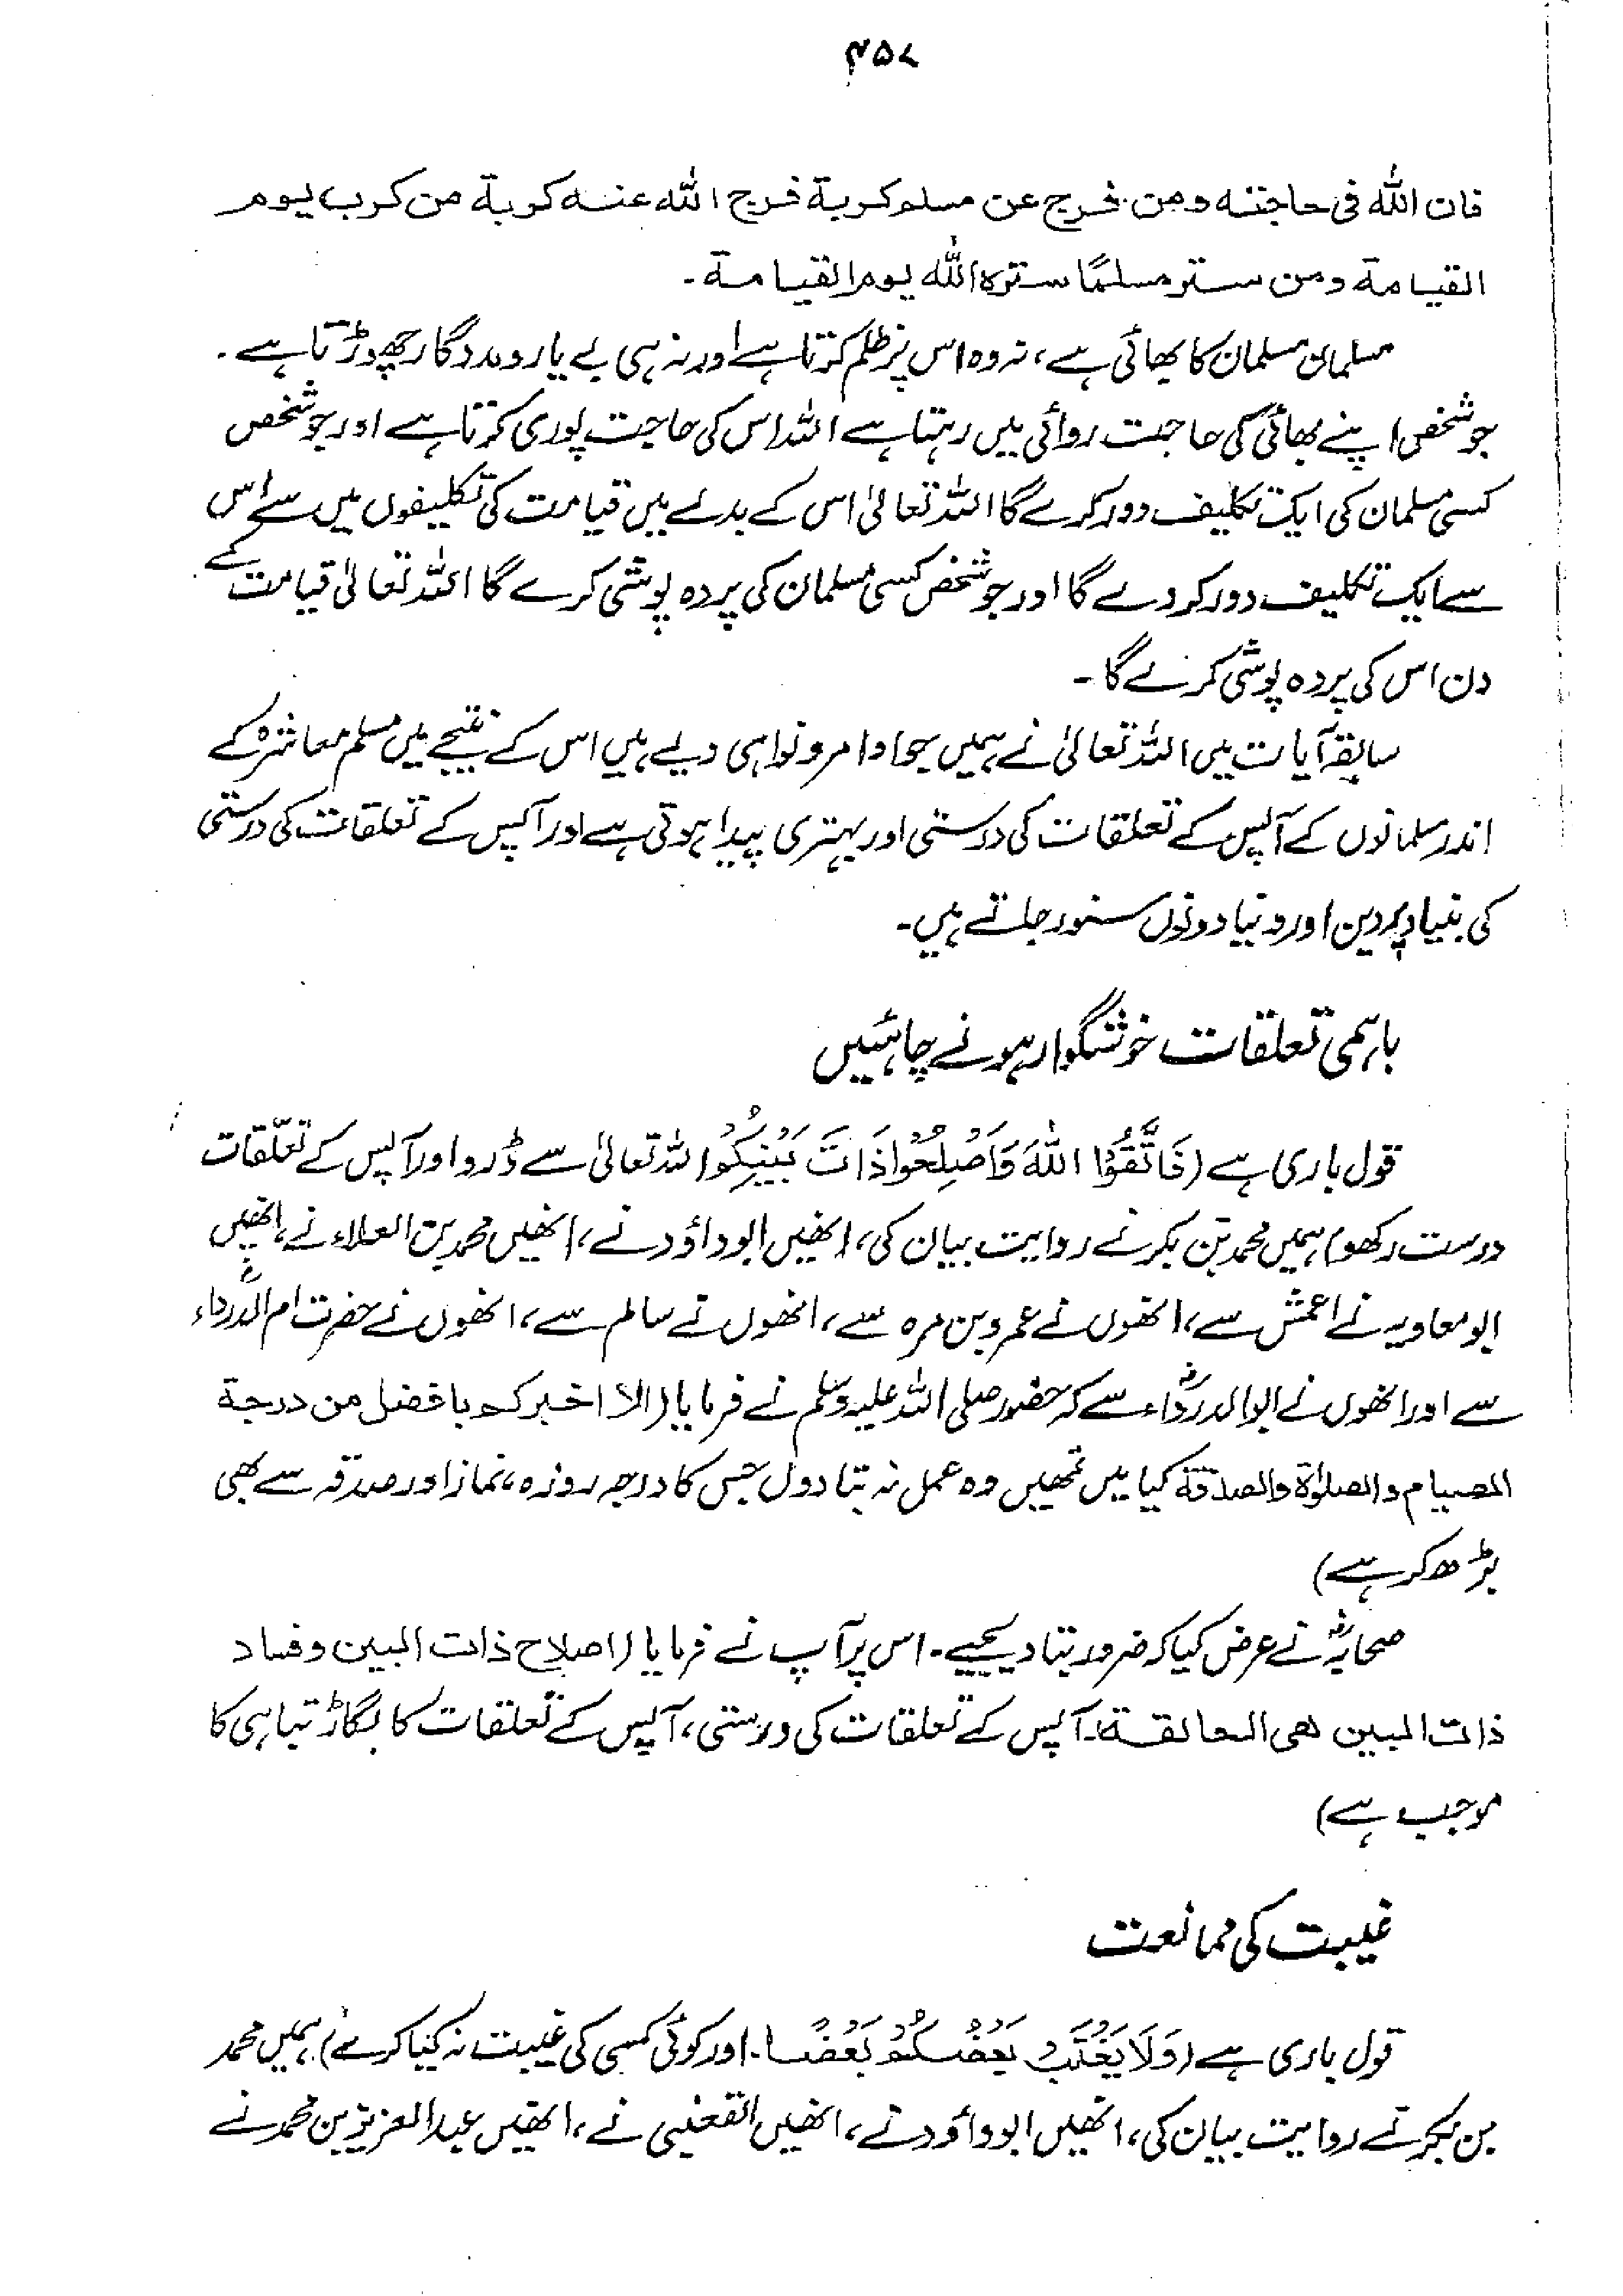 ۴۵۷
فان الله فی حاجتہ ومن فرج عن مسلم کربة فرج الله عنہ کربة من کرب یوم
القیامة ومن ستر مسلمًا سترہ الله یوم القیامة۔
مسلمان مسلمان کا بھائی ہے، نہ وہ اس پر ظلم کرتا ہے اور نہ ہی بے یار و مددگار چھوڑتا ہے۔
جو شخص اپنے بھائی کی حاجت روائی میں رہتا ہے اللہ اس کی حاجت پوری کرتا ہے اور جو شخص
کسی مسلمان کی ایک تکلیف دور کرے گا اللہ تعالیٰ اس کے بدلے میں قیامت کی تکلیفوں میں سے اس
سے ایک تکلیف دور کر دے گا اور جو شخص کسی مسلمان کی پردہ پوشی کرے گا اللہ تعالیٰ قیامت کے
دن اس کی پردہ پوشی کرے گا۔
سابقہ آیات میں اللہ تعالیٰ نے ہمیں جو اوامر و نواہی دیے ہیں اس کے نتیجے میں مسلم معاشرہ کے
اندر مسلمانوں کے آپس کے تعلقات کی درستی اور بہتری پیدا ہوتی ہے اور آپس کے تعلقات کی درستی
کی بنیاد پر دین اور دنیا دونوں سنور جاتے ہیں۔
باہمی تعلقات خوشگوار ہونے چاہئیں
قول باری ہے (فَاتَّقُوا اللهَ وَاَصْلِحُوْا ذَاتَ بَيْنِكُمْ اللہ تعالیٰ سے ڈرو اور آپس کے تعلّقات
درست رکھو) ہمیں محمد بن بکر نے روایت بیان کی، انھیں ابو داؤد نے، انھیں محمد بن العلاء نے، انھیں
ابو معاویہ نے اعمش سے، انھوں نے عمرو بن مرہ سے، انھوں نے سالم سے، انھوں نے حضرت ام الدرداءؓ
سے اور انھوں نے ابوالدرداءؓ سے کہ حضور صلی اللہ علیہ وسلم نے فرمایا (الا اخبرکم بافضل من درجة
الصیام والصلوٰة والصدقة کیا میں تمھیں وہ عمل نہ بتا دوں جس کا درجہ روزہ، نماز اور صدقہ سے بھی
بڑھ کر ہے)
صحابہؓ نے عرض کیا کہ ضرور بتا دیجیے۔ اس پر آپ نے فرمایا (اصلاح ذات البین وفساد
ذات البین ھی الحالقة۔ آپس کے تعلقات کی درستی، آپس کے تعلقات کا بگاڑ تباہی کا
موجب ہے)
غیبت کی ممانعت
قول باری ہے (وَلَا يَغْتَبْ بَعْضُكُمْ بَعْضًا۔ اور کوئی کسی کی غیبت نہ کیا کرے) ہمیں محمد
بن بکر نے روایت بیان کی، انھیں ابو داؤد نے، انھیں القعنبی نے، انھیں عبدالعزیز بن محمد نے